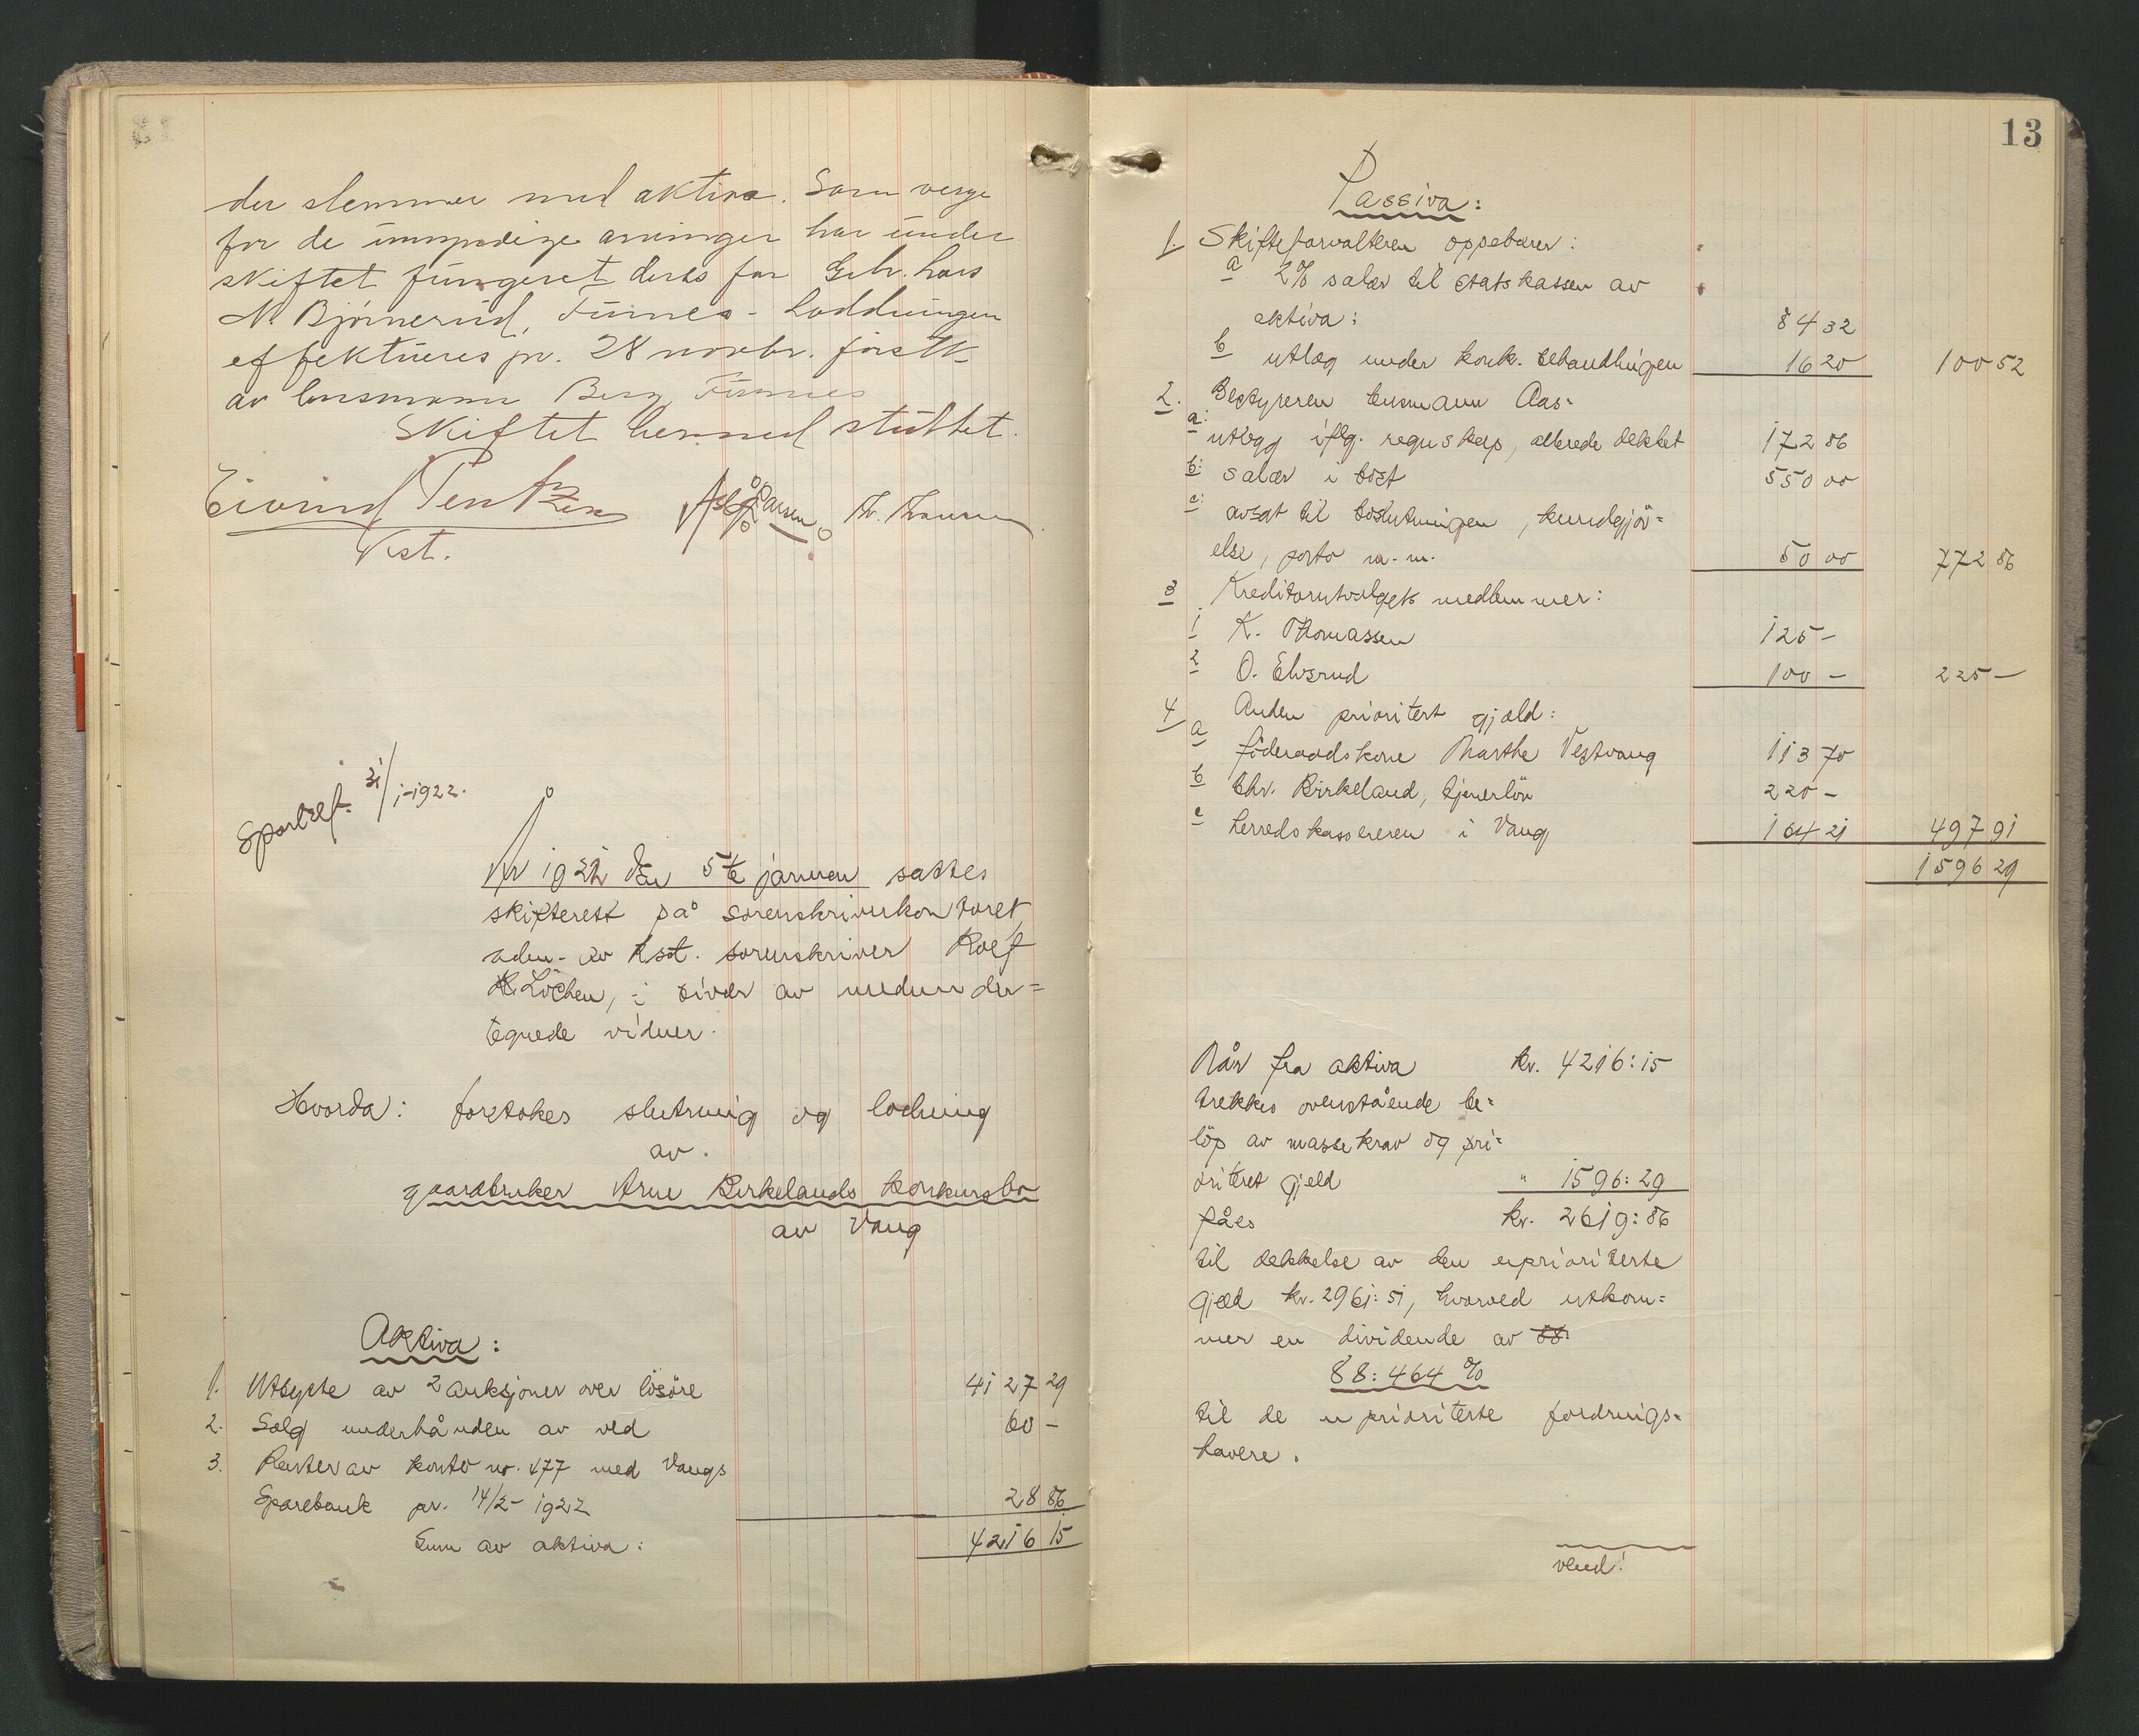 der stemmer med aktiva. Som verge
for de umyndige arvinger har under
skiftet fungeret deres far Gbr. Lars
N. Bjørnerud, Furnes - Loddningen
effektueres pr. 28 novbr. førstk.
av lensmann Berg, Furnes
Skiftet hermed sluttet.
Eivind
Kst.
Sportelf. 31/1-1922.
År 1922 den 5te januar sattes
skifterett på sorenskriverkontoret
adm. av kst. sorenskriver Rolf
R. Löchen, i nivær av medunder=
tegnede vidner.
Hvorda: foretokes slutning og lodning
av.
gaardbruker Arne Birkelands konkursbo
av Vang
Aktiva:
1. Utbytte av 2 auksjoner over lösöre 4127 29
2. Salg underhånden av ved 60 -
3. Renter av konto nr. 477 med Vangs
Sparebank pr. 14/2 - 1922 28 86
Sum av aktiva: 4216 15
13
Passiva:
1. Skifteforvalteren oppebærer:
a 2% salær til statskassen av
aktiva: 84 32
b utlæg under konk. behandlingen 16 20 100 52
2. Bestyreren lensmann Aas:
a: utlegg iflg. regnskap, allerede dekket 172 86
b: salær i bost 550 00
c: avsat til boslutningen, kundgjör=
else, porto m.m. 50 00 772 86
3 Kreditorutvalgets medlemmer:
1 K. Thomassen 125 -
2 O. Elvsrud 100 - 225 -
4 Anden prioritert gjæld:
a föderaadskone Marthe Vestvang 113 70
b Chr. Birkeland, tjenerlön 220 -
c herredskassereren i Vang 164 21 497 91
1596 29
Når fra aktiva kr. 4216:15
trekkes ovenstående be=
löp av massekrav og pri=
oriteret gjeld " 1596:29
fåes kr. 2619:86
til dekkelse av den uprioriterte
gjeld kr. 2961:51, hvorved utkom=
mer en dividende av 88:
88:464 %
til de uprioriterte fordrings=
havere.
vend!